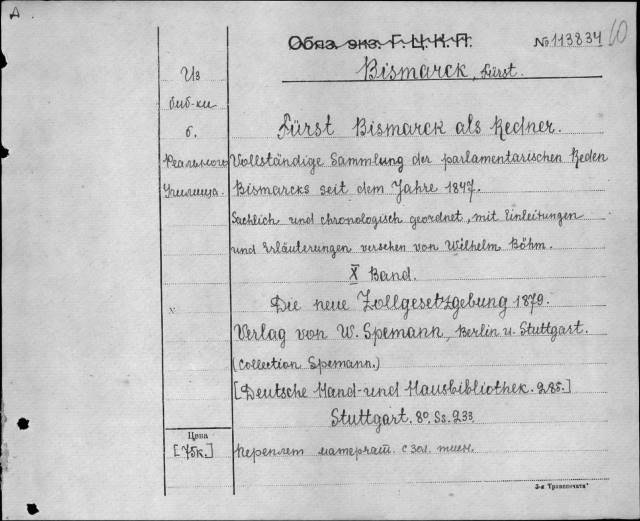 A
Обяз. экз. Г. Ц. К. П.
№ 113834
10
Bismarck, Fürst.
Из
биб-ки
б.
Реального
Училища.
Fürst Bismarck als Redner.
Vollständige Sammlung der parlamentarischen Reden
Bismarcks seit dem Jahre 1847.
Sachlich und chronologisch geordnet, mit Einleitungen
und Erläuterungen versehen von Wilhelm Böhm.
X Band.
x
Die neue Zollgesetzgebung 1879.
Verlag von W. Spemann, Berlin u. Stuttgart.
(Collection Spemann.)
[Deutsche Hand- und Hausbibliothek. 285.]
Stuttgart. 8º. Ss. 233
Цена
[75к.]
Переплет матерчат. с зол. тисн.
3-я Транспечать